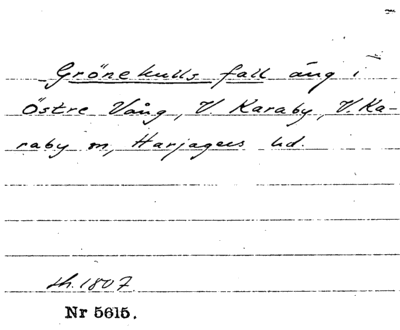 Grönekulls fall äng i
Östre Vång, V. Karaby, V. Ka-
raby sn, Harjagers hd.
sh. 1807
Nr 5615.